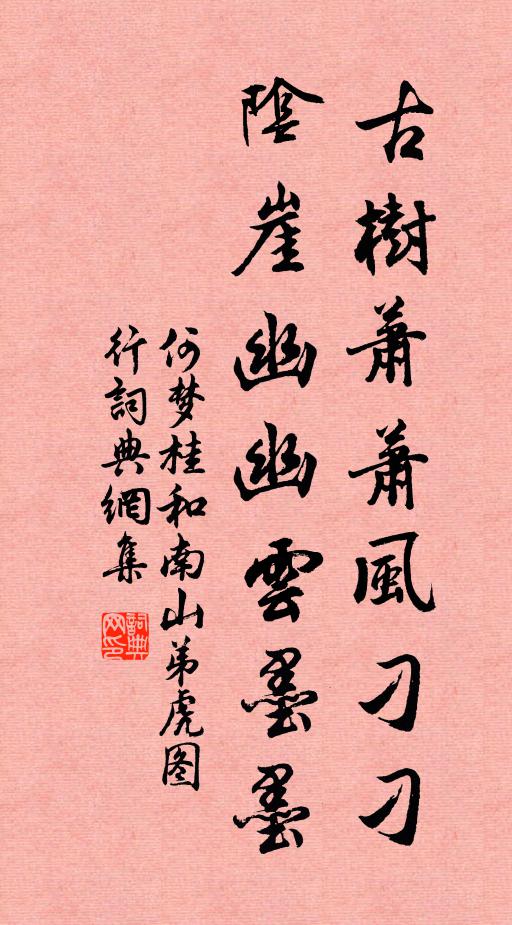 古樹蕭蕭風刁刁
陰崖幽幽雲墨墨
何梦桂和南山弟虎图
行詞典網集
詞典网印